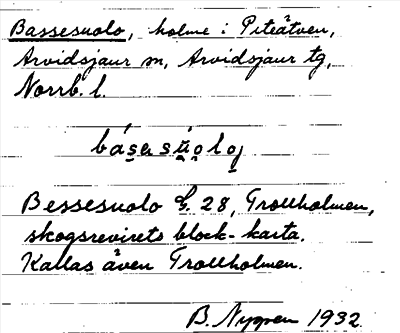 Bassesuolo, holme i Piteälven,
Arvidsjaur sn, Arvidsjaur tg,
Norrb. l.
básasúoloj
Bessesuolo L. 28, Trollholmen,
skogsrevirets block-karta.
Kallas även Trollholmen.
B. Nyppen 1932.